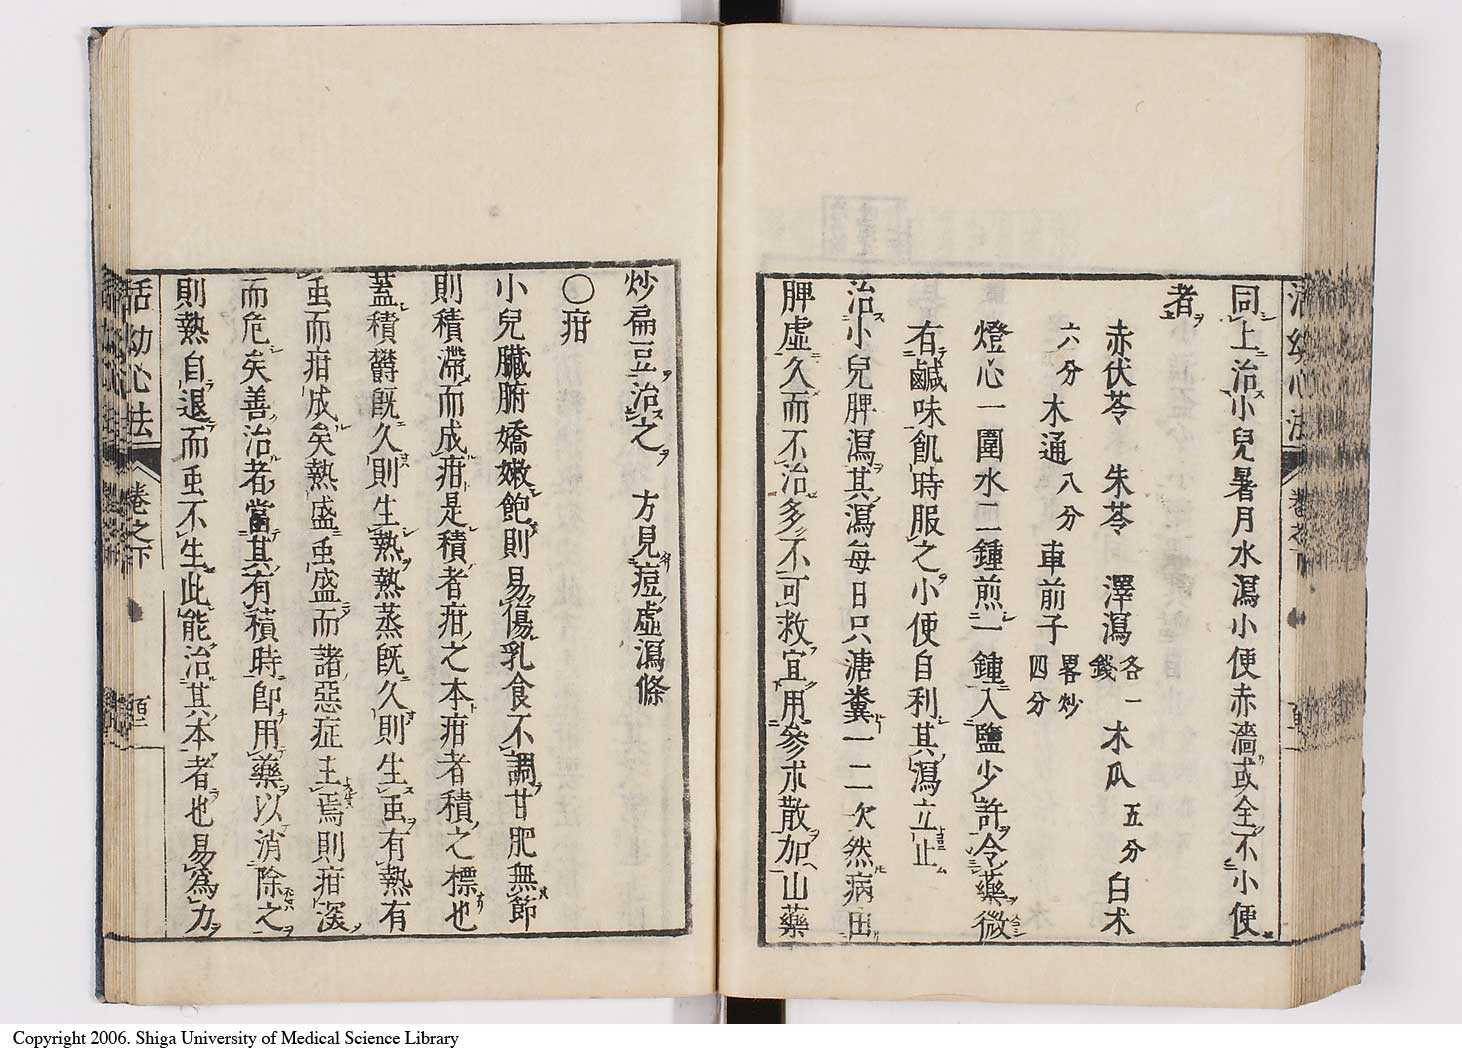 活幼心法 卷之下
同上治小兒暑月水瀉小便赤濇或全不小便
者
赤伏苓 朱苓 澤瀉各一錢 木瓜五分 白朮
六分 木通八分 車前子畧炒四分
燈心一圍水二鍾煎一鍾入鹽少許令藥微
有鹹味飢時服之小便自利其瀉立止
治小兒脾瀉其瀉每日只溏糞一二次然病由
脾虛久而不治多不可救宜用參朮散加山藥
炒扁豆治之 方見痘虛瀉條
〇疳
小兒臟腑嬌嫩飽則易傷乳食不調甘肥無節
則積滯而成疳是積者疳之本疳者積之標也
蓋積欝既久則生熱熱蒸既久則生䖝有熱有
䖝而疳成矣熱盛䖝盛而諸惡症生焉則疳深
而危矣善治者當其有積時即用藥以消除之
則熱自退而䖝不生此能治其本者也易為力
活幼心法 卷之下 百二